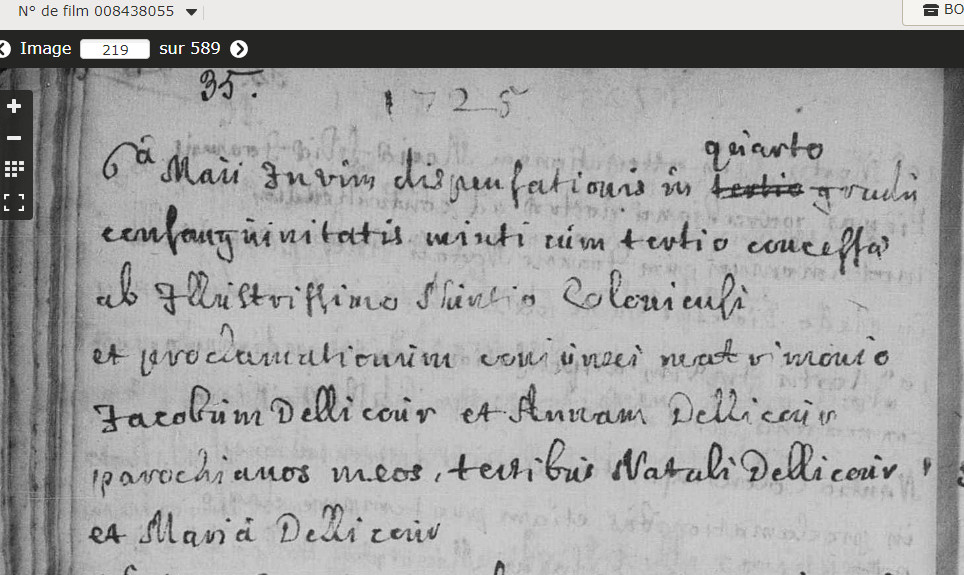 N° de film 008438055
BO
Image 219 sur 589
35.
1725
quarto
6â Maii In vim dispensationis in tertio gradu
consanguinitatis mixti cum tertio concessa
ab Illustrissimo Nuntio Coloniensi
et proclamationum coniunxi matrimonio
Jacobum Dellicour et Annam Dellicour
parochianos meos, testibus Natali Dellicour
et Mariâ Dellicour